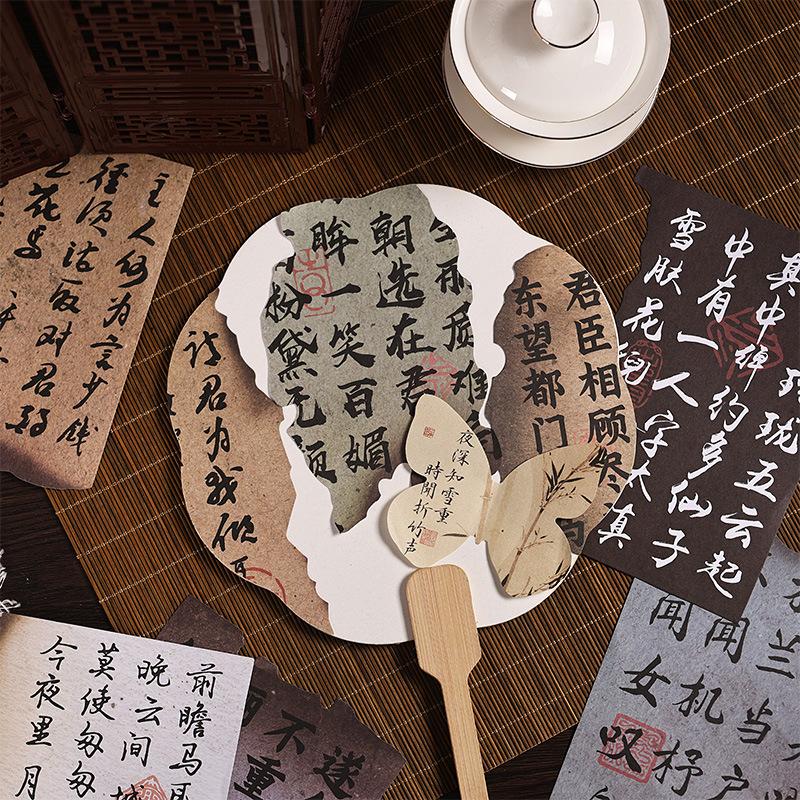 主人何为言少钱
径须沽取对君酌
花马
生丽质难自
朝选在君
眸一笑百媚
粉黛无颜
君臣相顾尽
东望都门
请君为我倾耳
夜深知雪重
時聞折竹声
玲珑五云起
其中绰约多仙子
中有一人字太真
雪肤花貌
兰当户
闻机杼
闻女叹
前瞻马耳
晚云间城
莫使匆匆
今夜里月
遂
不重